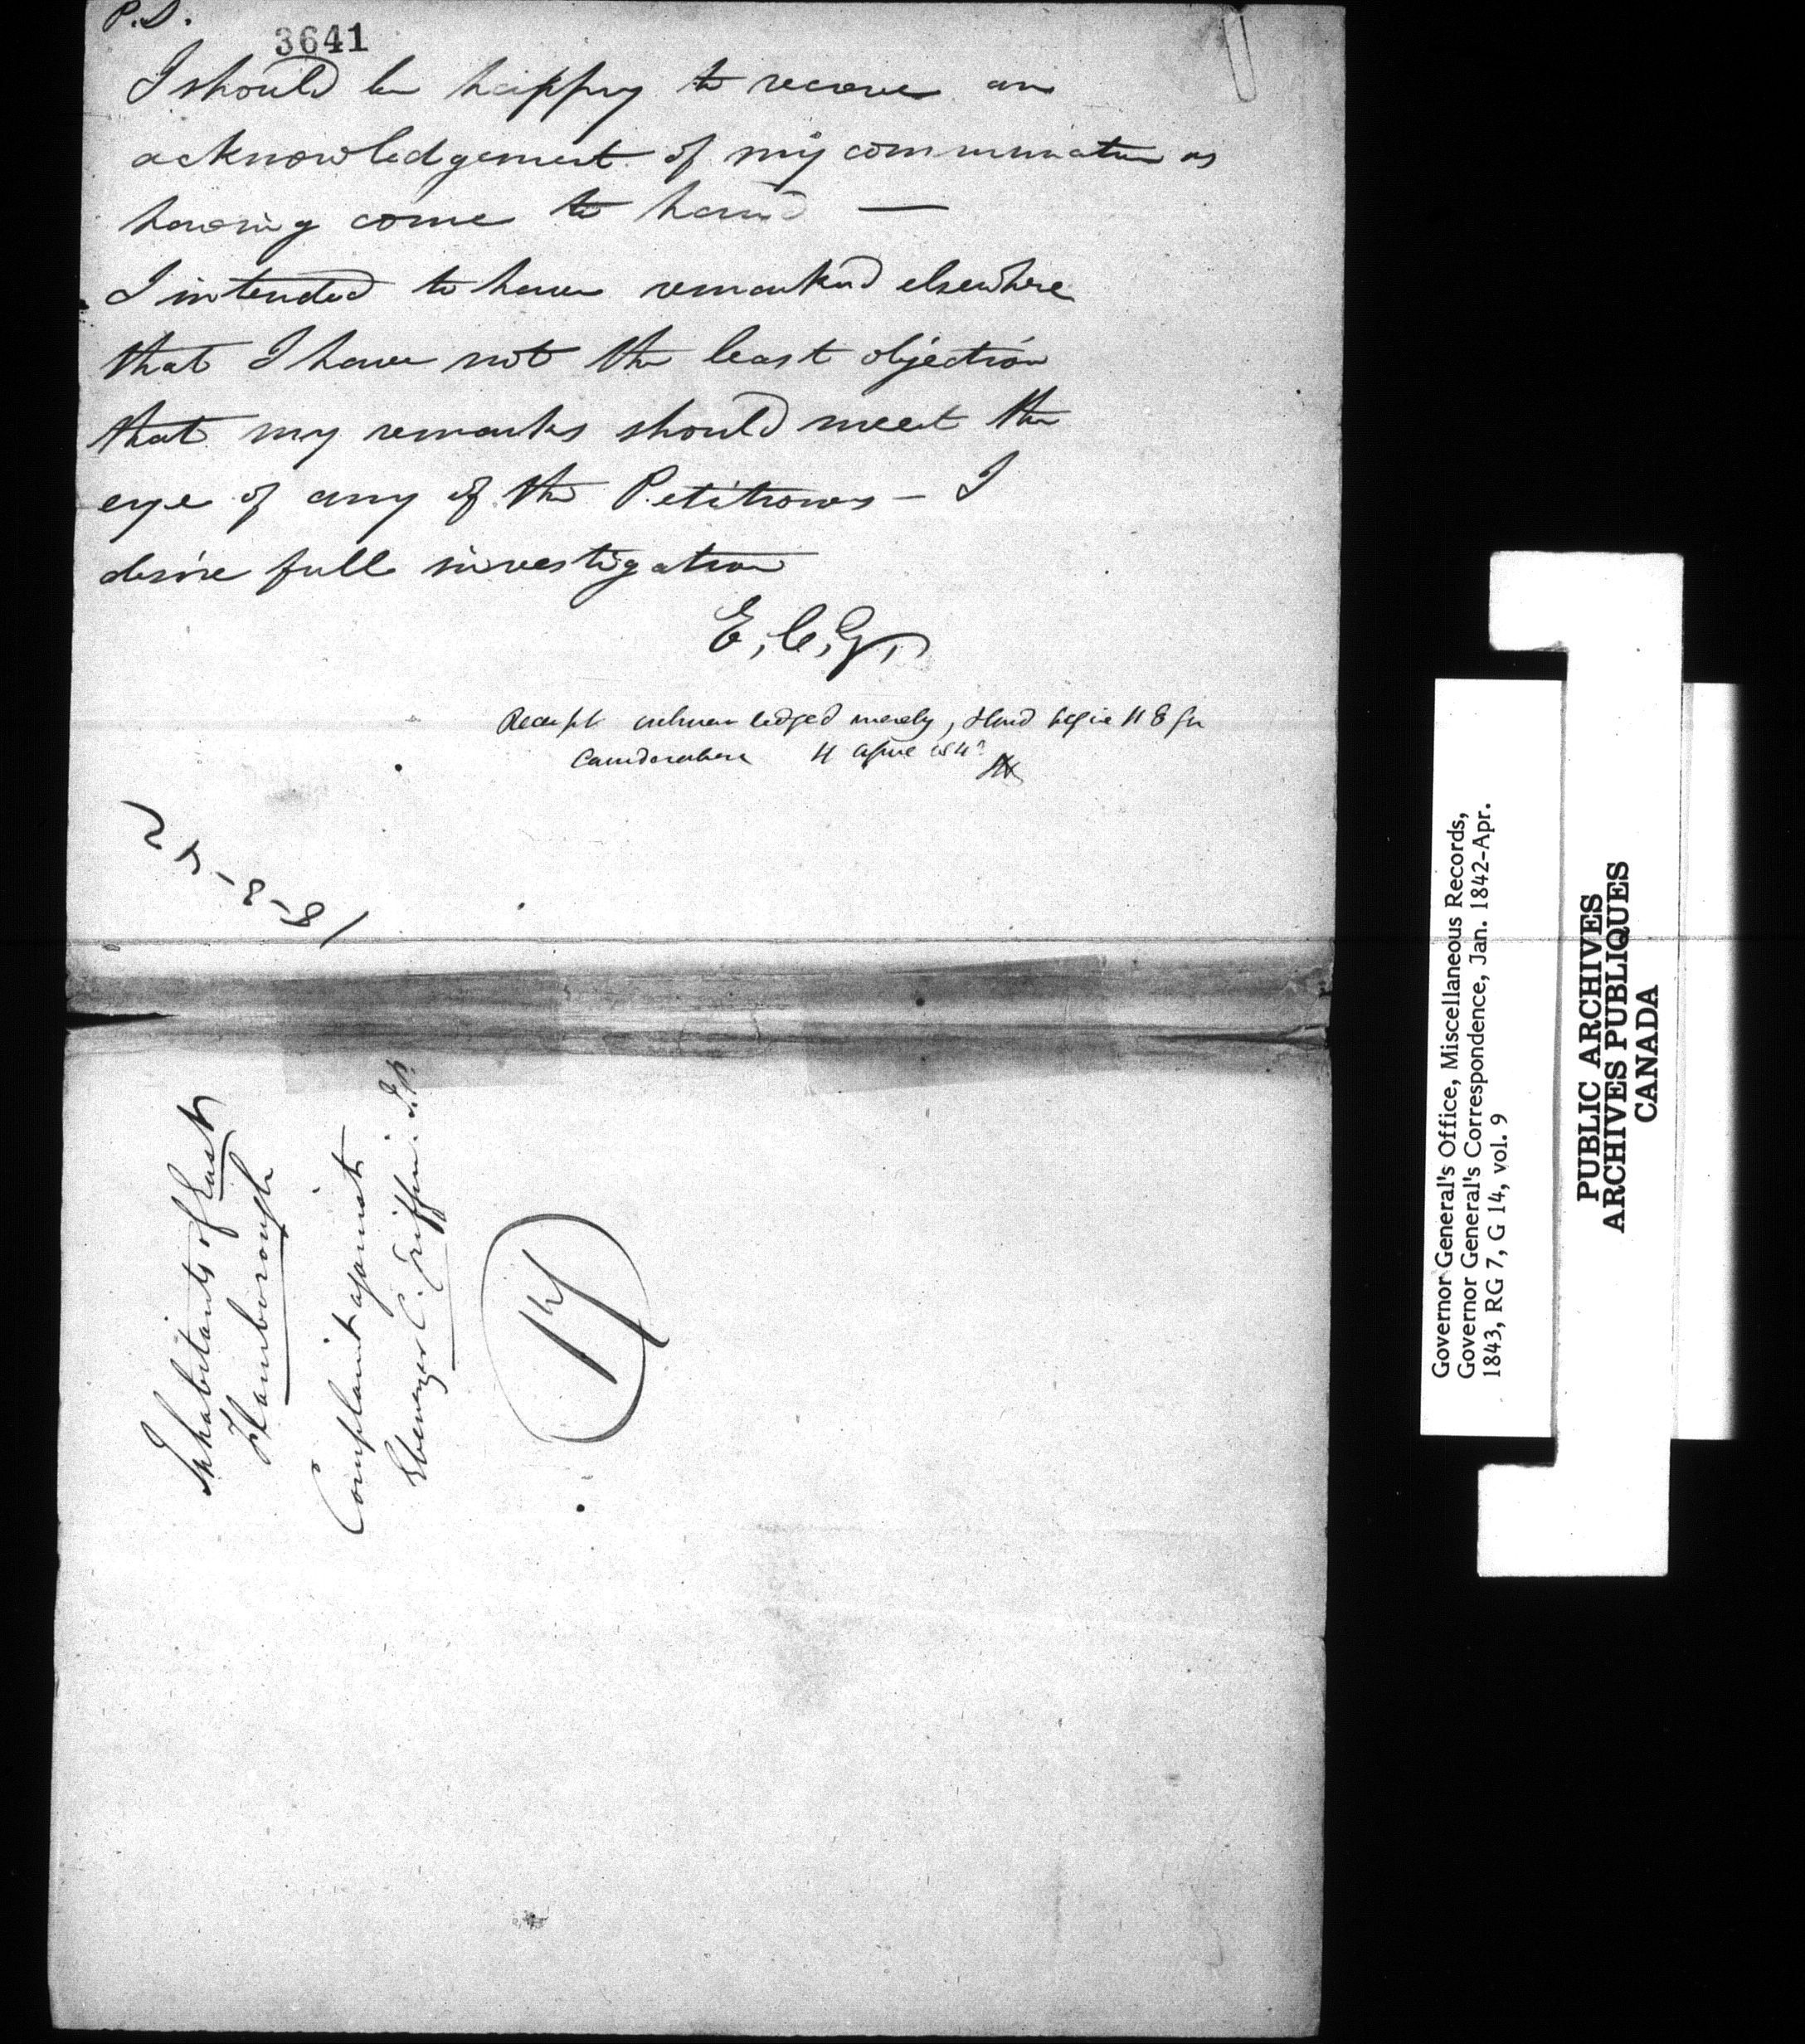 P.S.
3641
I should be happy to receive an
acknowledgement of my communication as
having come to hand —
I intended to have remarked elsewhere
that I have not the least objection
that my remarks should meet the
eye of any of the Petitioners - I
desire full investigation
E, C, G,
Receipt acknowledged merely, & laid before H E for
Consideration 4 April 184
Inhabitants of East
Flamborough
Complaint against
Ebenezer C. Griffin J.P.
Governor General's Office, Miscellaneous Records,
Governor General's Correspondence, Jan. 1842-Apr.
1843, RG 7, G 14, vol. 9
PUBLIC ARCHIVES
ARCHIVES PUBLIQUES
CANADA